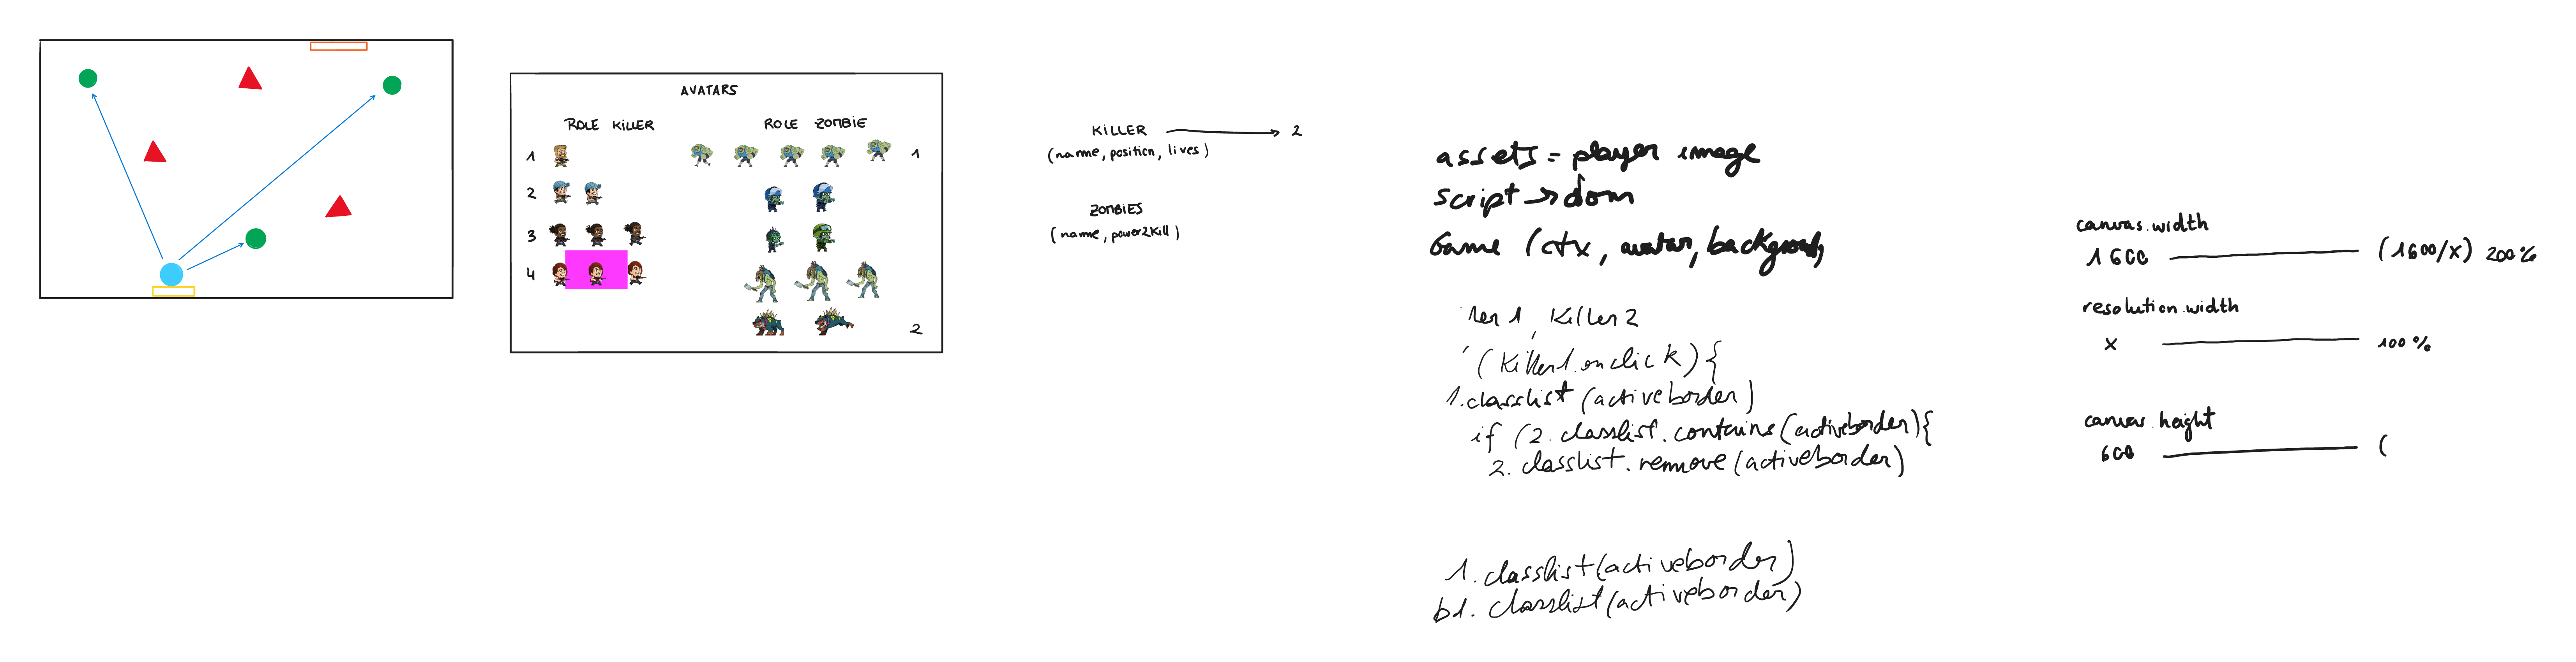 AVATARS
ROLE KILLER
ROLE ZOMBIE
1
1
2
3
4
2
KILLER 2
(name, position, lives)
ZOMBIES
(name, power2kill)
assets = player image
script → dom
Game (ctx, avatar, background)
ller 1, Killer 2
(Killer1.onclick) {
1.classlist (activeborder)
if (2.classlist.contains(activeborder){
2. classlist.remove(activeborder)
1. classlist(activeborder)
b1. classlist(activeborder)
canvas.width
1600 (1600/x) 200%
resolution.width
x 100%
canvas.height
600 (